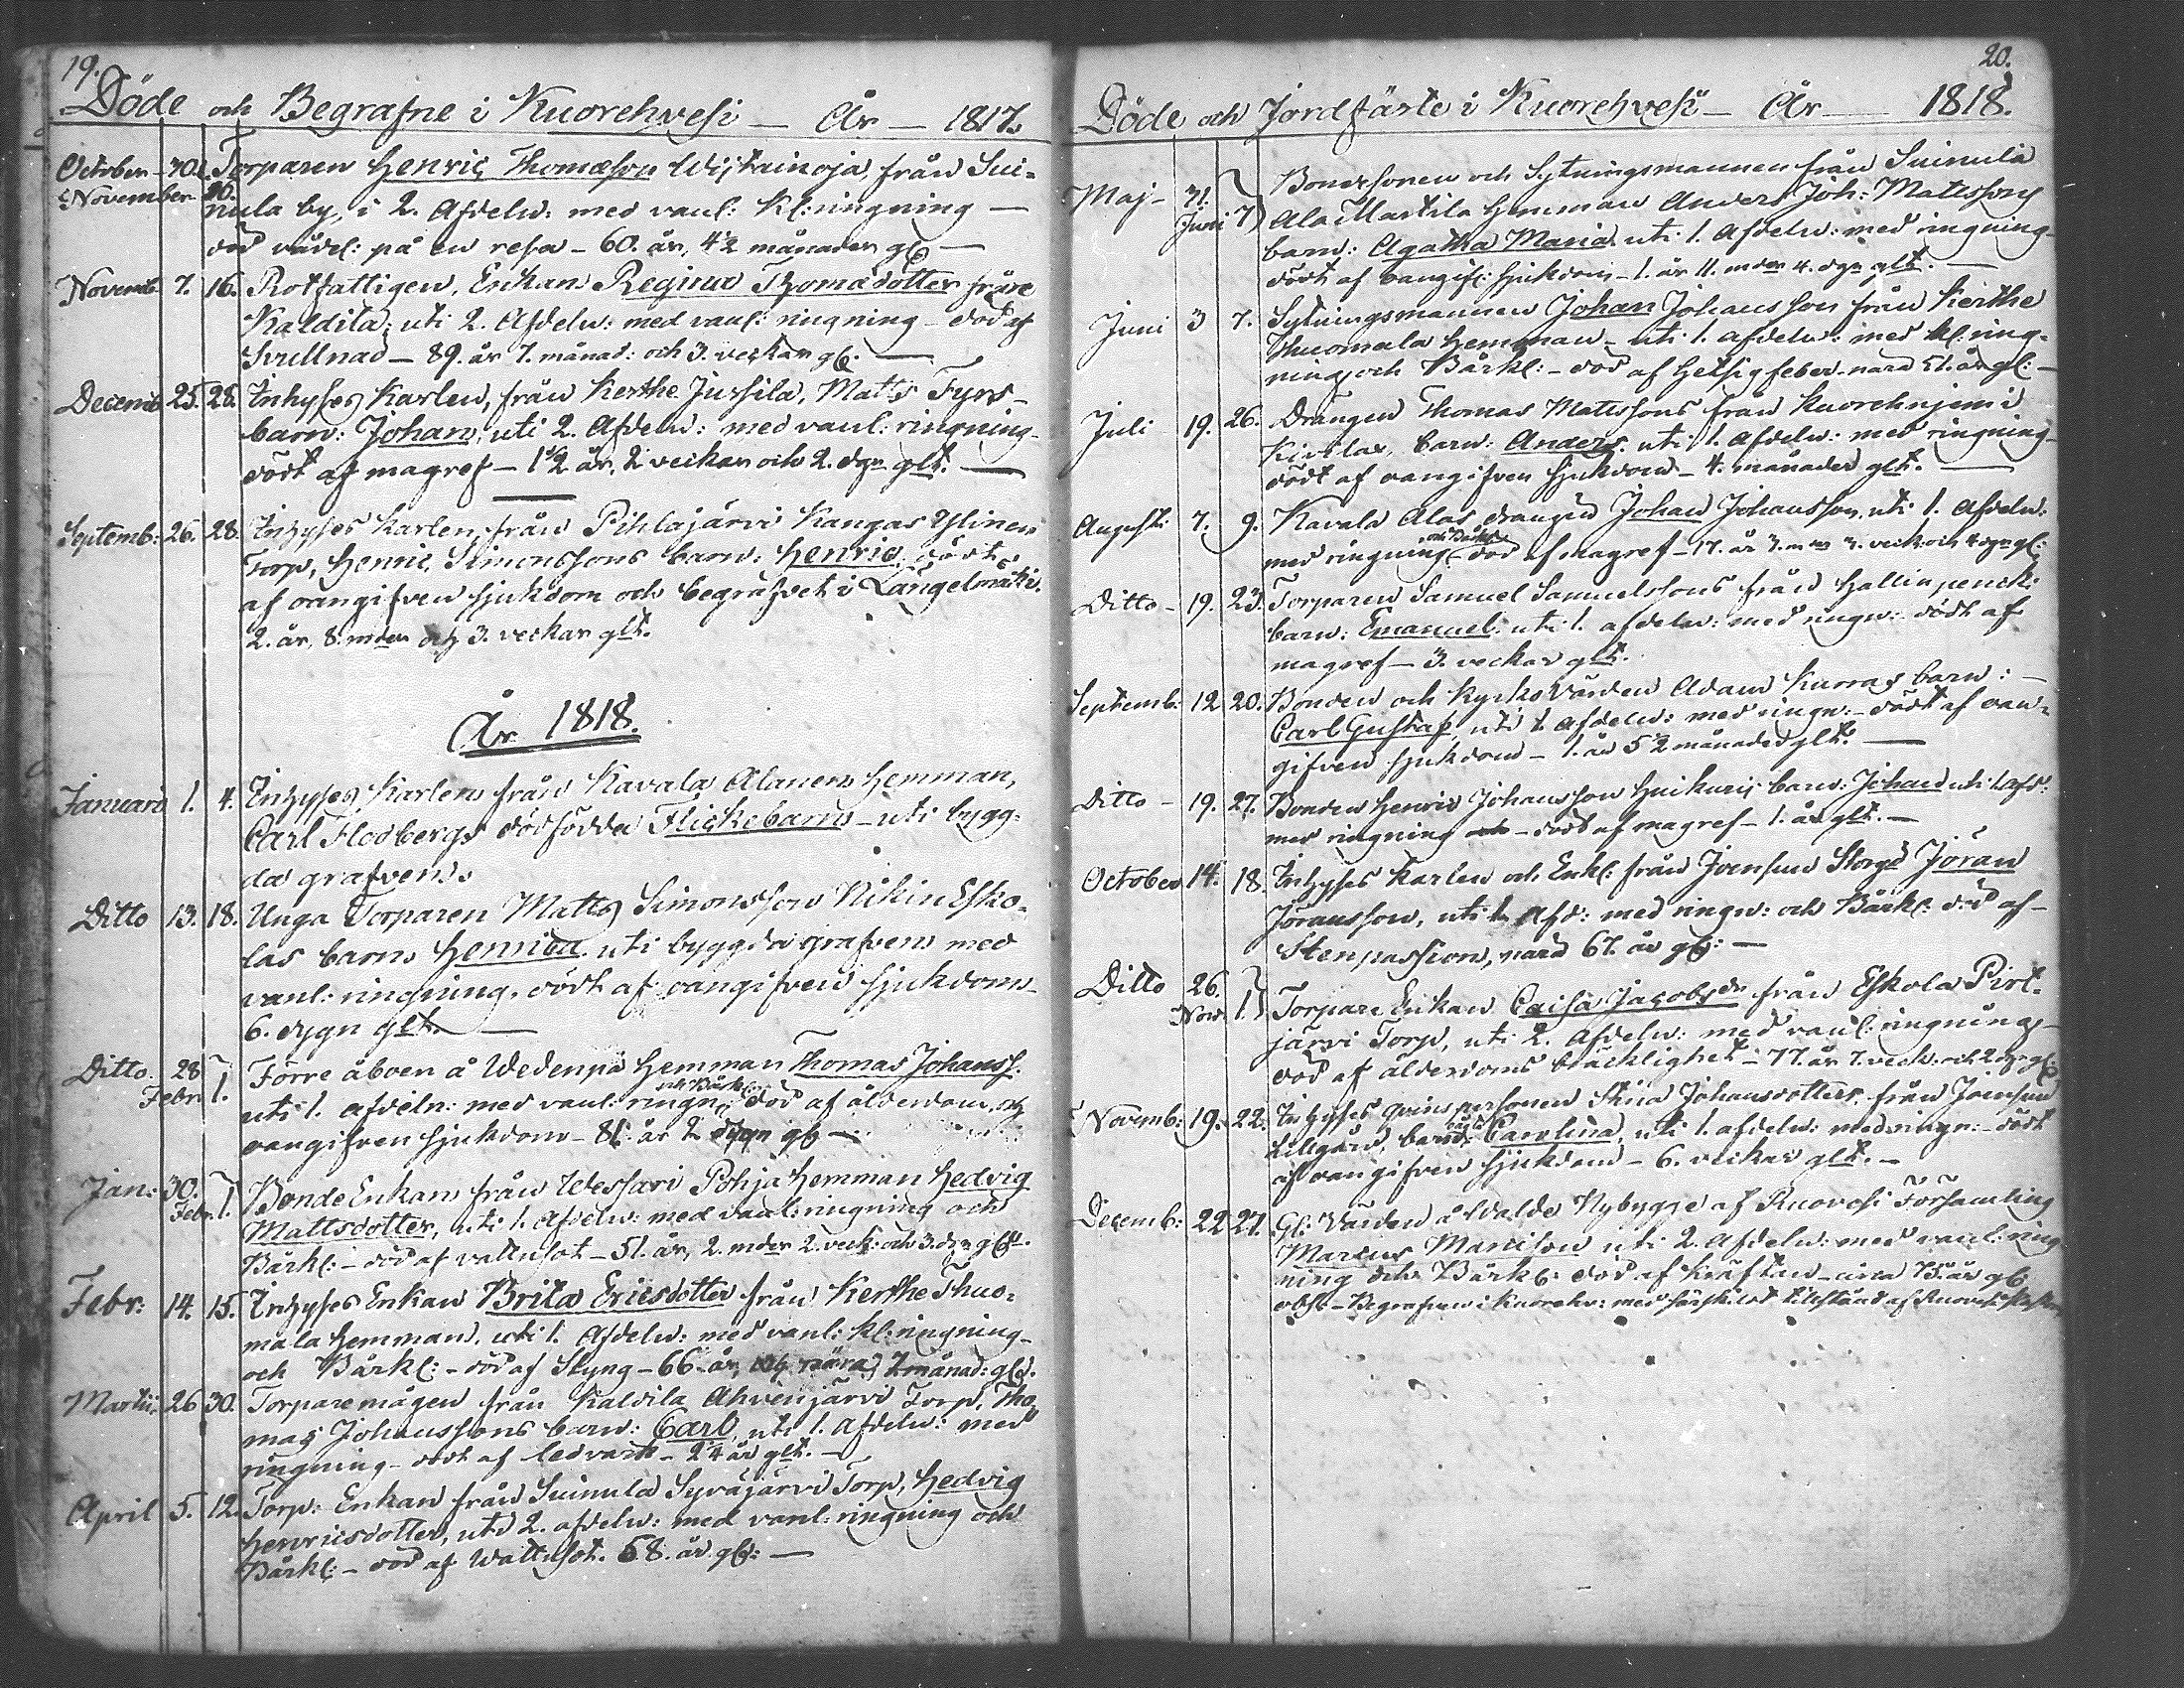 19.
Döde och Begrafne i Kuorehvesi — År — 1817.
October 30. Torparen Henric Thomæson Wijkainoja, från Sui-
November 16. nula by, i 2. Afdeln: med vanl: Kl:ringning —
död vådel: på en resa — 60. år, 4½ månader gl. —
Novemb. 7. 16. Rotfattigen, Enkan Regina Thomædotter från
Kaldila, uti 2. Afdeln: med vanl: ringning — död af
Svullnad — 89. år 7. månad: och 3. veckor gl: —
Decemb 25. 28. Inhyses Karlen, från Kerthe Jussila, Matts Fyrs
barn: Johan, uti 2. Afdeln: med vanl: ringning —
dödt af magref — 1½ år, 2 veckor och 2. dgn glt. —
Septemb: 26. 28. Inhyses Karlen, från Pihlajärvi Kangas Ylinen
Torp, Henric Simonssons barn: Henric, dödt
af oangifven sjukdom och begrafvet i Längelmäki.
2. år, 8. mder och 3. veckor glt.
År 1818.
Januari 1. 4. Inhyses Karlens från Kavala Alanen Hemman,
Carl Flodbergs dödfödda Flickebarn — uti bygg-
da grafven.
Ditto 13. 18. Unga Torparen Matts Simonsson Nikin Esko-
las barn Henrica uti byggda grafven med
vanl: ringning, dödt af oangifven sjukdom —
6. dygn glt. —
Ditto. 28 Febr. 1. Förre åboen å Wedenpä Hemman Thomas Johanss.
uti 1. afdeln: med vanl: ringn: och Bårkl: död af ålderdom och
oangifven sjukdom — 81. år 2 dygn gl —
Jan: 30. Febr. 1. Bonde Enkan från Wessari Pohja Hemman Hedvig
Mattsdotter, uti 1. Afdeln: med vanl: ringning och
Bårkl: — död af vattusot — 51. år, 2. mder 2. veck: och 3. dgn gl.
Febr: 14. 15. Inhyses Enkan Brita Ericsdotter från Kerthe Thuo-
mala Hemman, uti 1. Afdeln: med vanl: kl:ringning —
och Bårkl: — död af Styng — 66 år, och nära 7 månad: gl.
Martii 26 30. Torparemågen från Kaldila Ahvenjärvi Torp, Tho-
mas Johanssons barn: Carl, uti 1. Afdeln: med
ringning — dödt af ledvärk — 2¼ år glt. —
April 5. 12. Torp: Enkan från Suinula Syväjärvi Torp, Hedvig
Henricsdotter, uti 2. afdeln: med vanl: ringning och
Bårkl: — död af Wattusot. 58. år gl: —
20.
Döde och Jordfäste i Kuorehvesi — År — 1818.
Maj — 31. Juni 7 Bondesonen och Sytningsmannen från Suinula
Ala Marttila Hemman Anders Joh: Mattssons
barn: Agatha Maria uti 1. Afdeln: med ringning —
dödt af oangif: sjukdom — 1. år 11. mder 4. dgn glt. —
Juni 3 7. Sytningsmannen Johan Johansson från Kerthe
Thuomala Hemman — uti 1. afdeln: med kl:ring-
ning och Bårkl: — död af Hetsigfeber nära 51. år gl: —
Juli 19. 26. Drängen Thomas Mattssons från Kuorehnjemi
barn: Anders uti 1. afdeln: med ringning —
dödt af oangifven sjukdom — 4. månader glt. —
Augusti 7. 9. Kavala Alas drängen Johan Johansson, uti 1. Afdeln:
med ringning och Bårkl död af magref — 17. år 3. mder 3. veck: och 4. dgn gl:
Ditto — 19. 23. Torparen Samuel Samuelssons från Hallinpenck:
barn: Emanuel: uti 1. afdeln: med ringn: dödt af
magref — 3. veckor glt.
Septemb: 12 20. Bonden och Kyrkovärden Adam Kurras barn: —
Carl Gustaf, uti 1. Afdeln: med ringn: — dödt af oan-
gifven sjukdom — 1. år 5½ månader glt: —
Ditto — 19. 27. Bonden Henric Johansson Huikuris barn: Johan uti 1. Afd:
med ringning — dödt af magref — 1. år glt. —
October 14. 18. Inhyses Karlen och Enkl: från Joensuu Storgd Jöran
Jöransson, uti 1. Afd: med ringn: och Bårkl: död af —
Stenpassion, nära 67. år gl: —
Ditto 26. Nov. 1. Torpare Enkan Caisa Jacobsdr från Eskola Pirt-
järvi Torp, uti 2. Afdeln: med vanl: ringning —
död af ålderdoms bräcklighet — 77. år 7. veck: och 2 dgr gl
Novemb: 19. 22. Inhyses qvinspersonen Stina Johansdotters, från Joensuu
Lillgård, barn: Carolina, uti 1. afdeln: med ringn: — dödt
af oangifven sjukdom — 6. veckor glt. —
Decemb: 22 27. Gl: Värden å Walde Nybygge af Ruovesi Församling
Marcus Mattson uti 2. Afdeln: med vanl: ring
ning och Bårkl: död af Kräftan — circa 75. år gl
obs: — Begrafven i Kuorehv: med särskildt tillstånd af Ruovesi